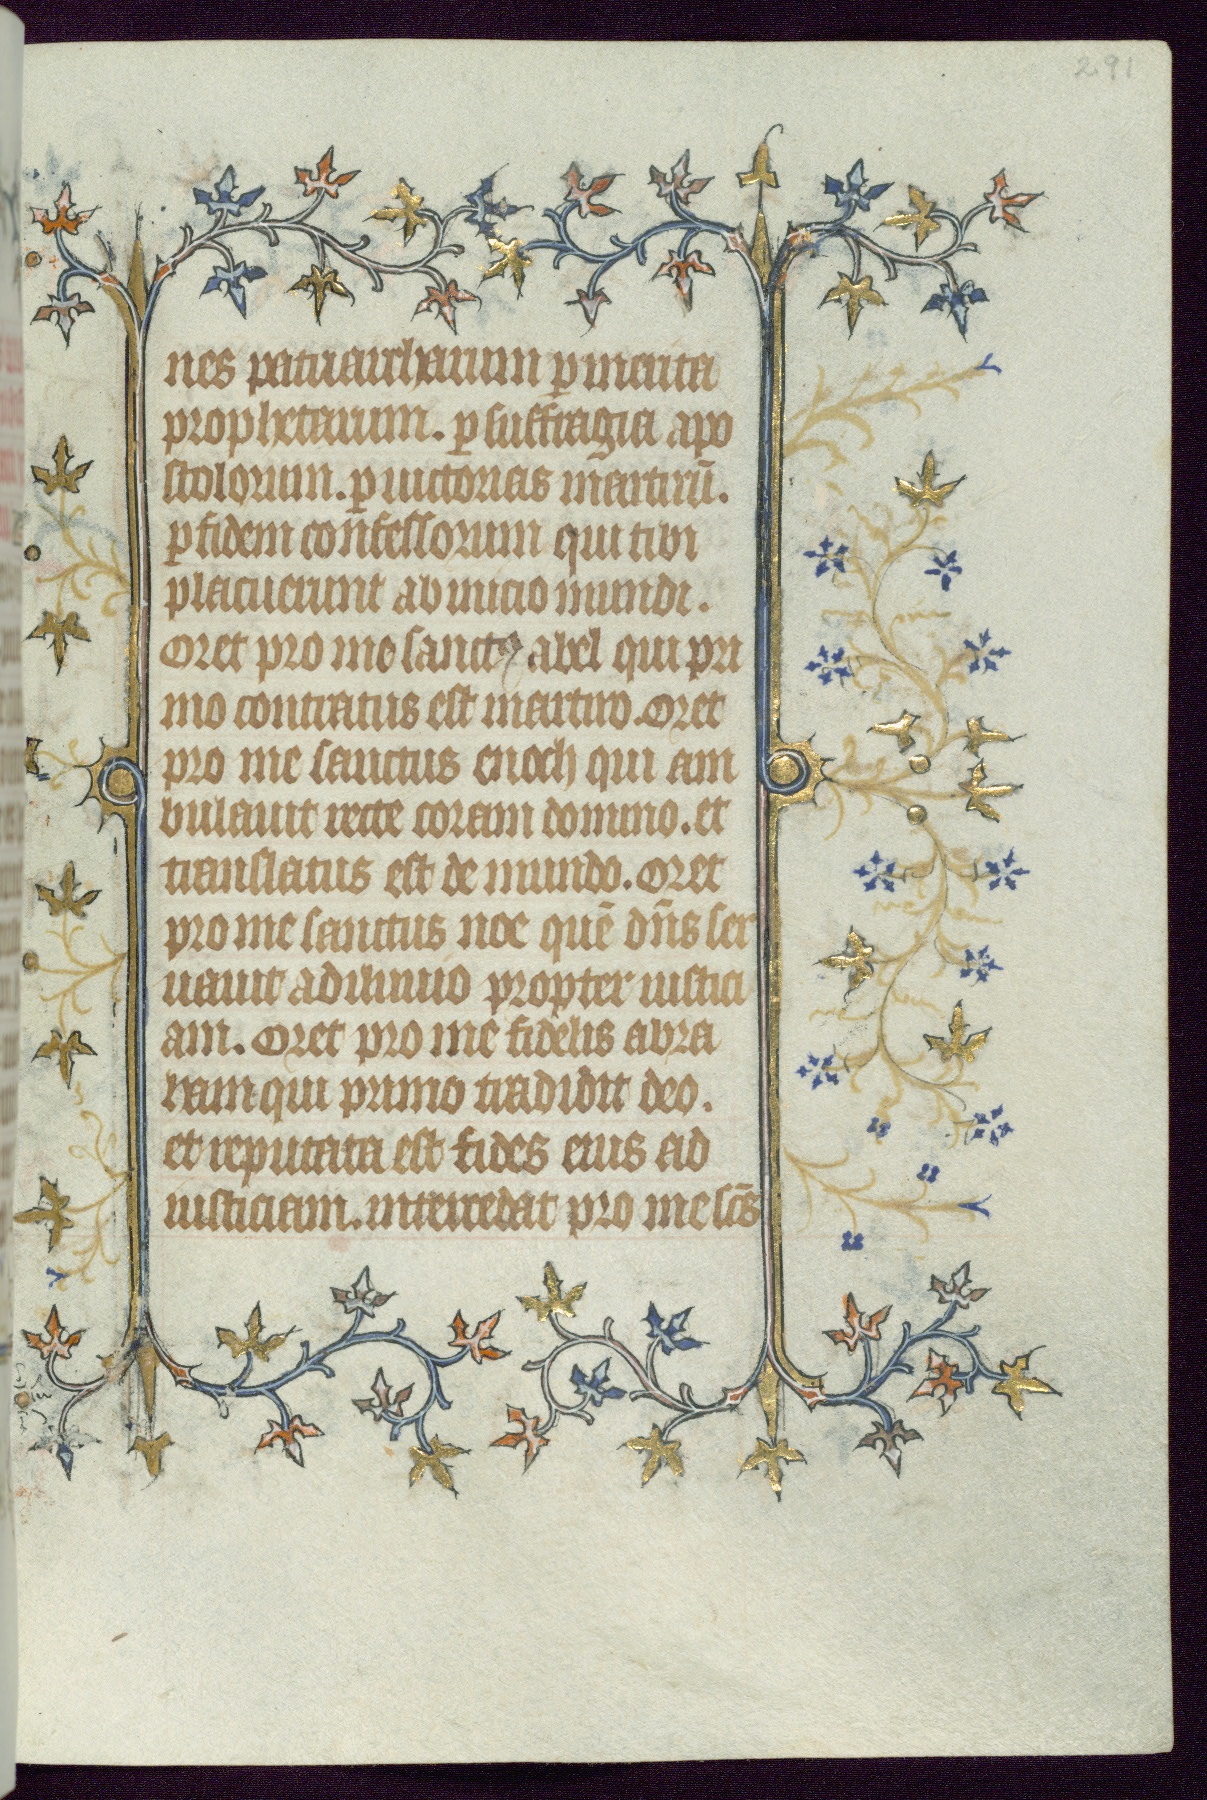 291
nes patriarcharum ꝑ merita
prophetarum. ꝑ suffragia apo
stolorum. ꝑ uictorias martirū.
ꝑ fidem confessorum qui tibi
placuerunt ab inicio mundi.
Oret pro me sanctꝰ abel qui pri
mo coronatus est martirio. Oret
pro me sanctus enoch qui am
bulauit recte coram domino. et
translatus est de mundo. Oret
pro me sanctus noe quē dn̄s ser
uauit a diluuio propter iustici
am. Oret pro me fidelis abra
ham qui primo tradidit deo.
et reputata est fides eius ad
iusticiam. intercedat pro me sc̄s